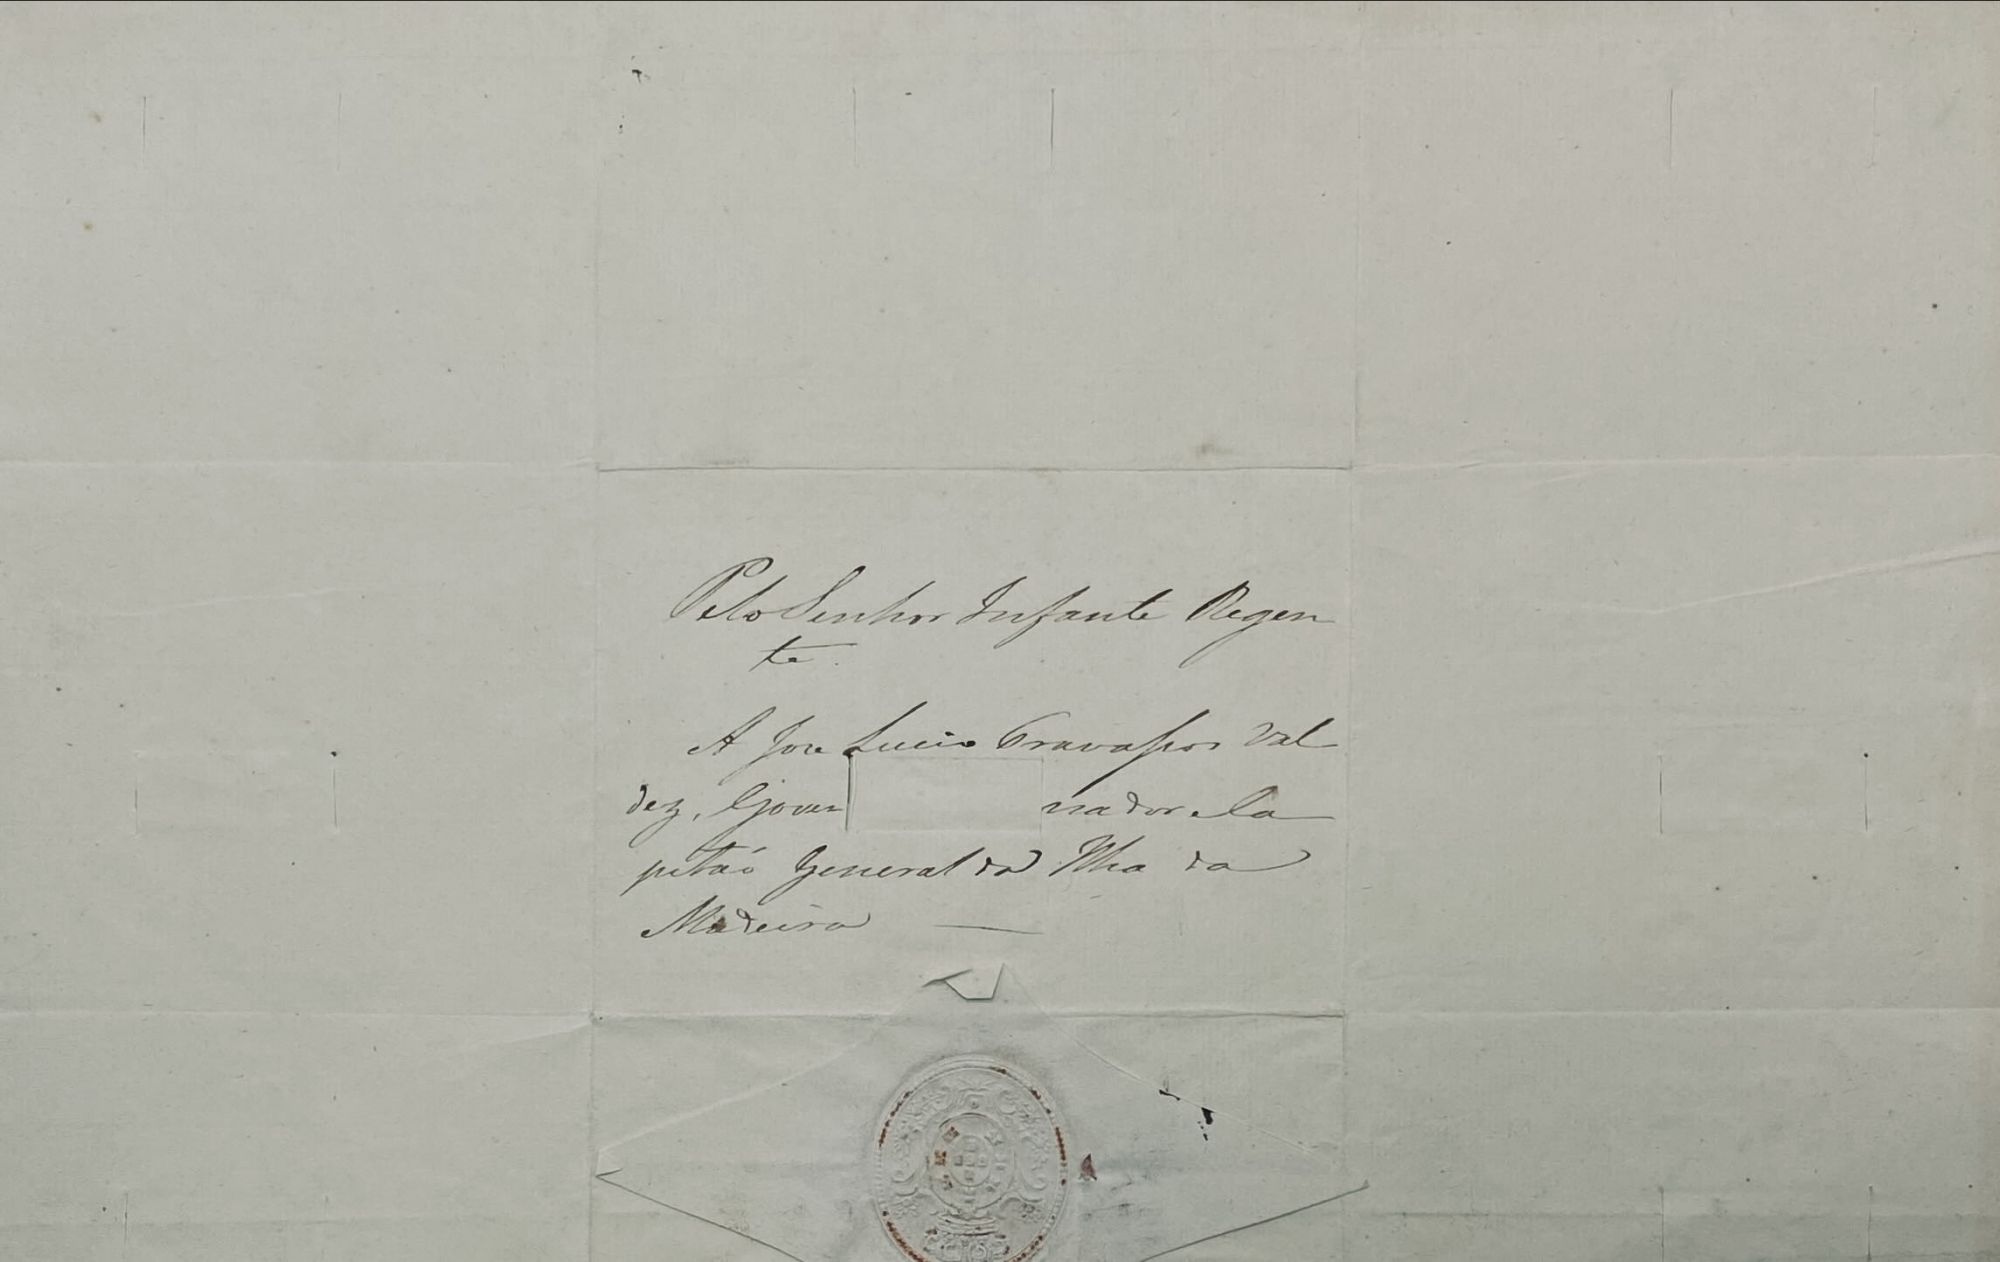 Pelo Senhor Infante Regen
te.
A Jose Lucio Travassos Val
dez, Gover nador e Ca
pitaó General da Ilha da
Madeira —